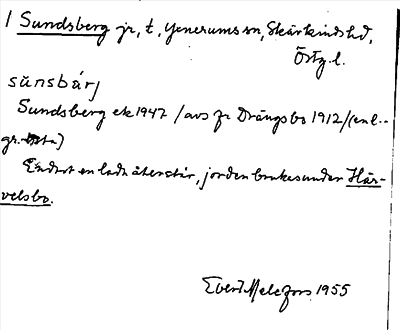 1 Sundsberg jr, t, Yxnerums sn, Skärkinds hd,
Östg.l.
sŭnsbárj
Sundsberg ek 1947 / avs fr Drängsbo 1912 / (enl.
gr.-)
Endast en lada återstår, jorden brukas under Här-
velsbo.
Evert Melefors 1955